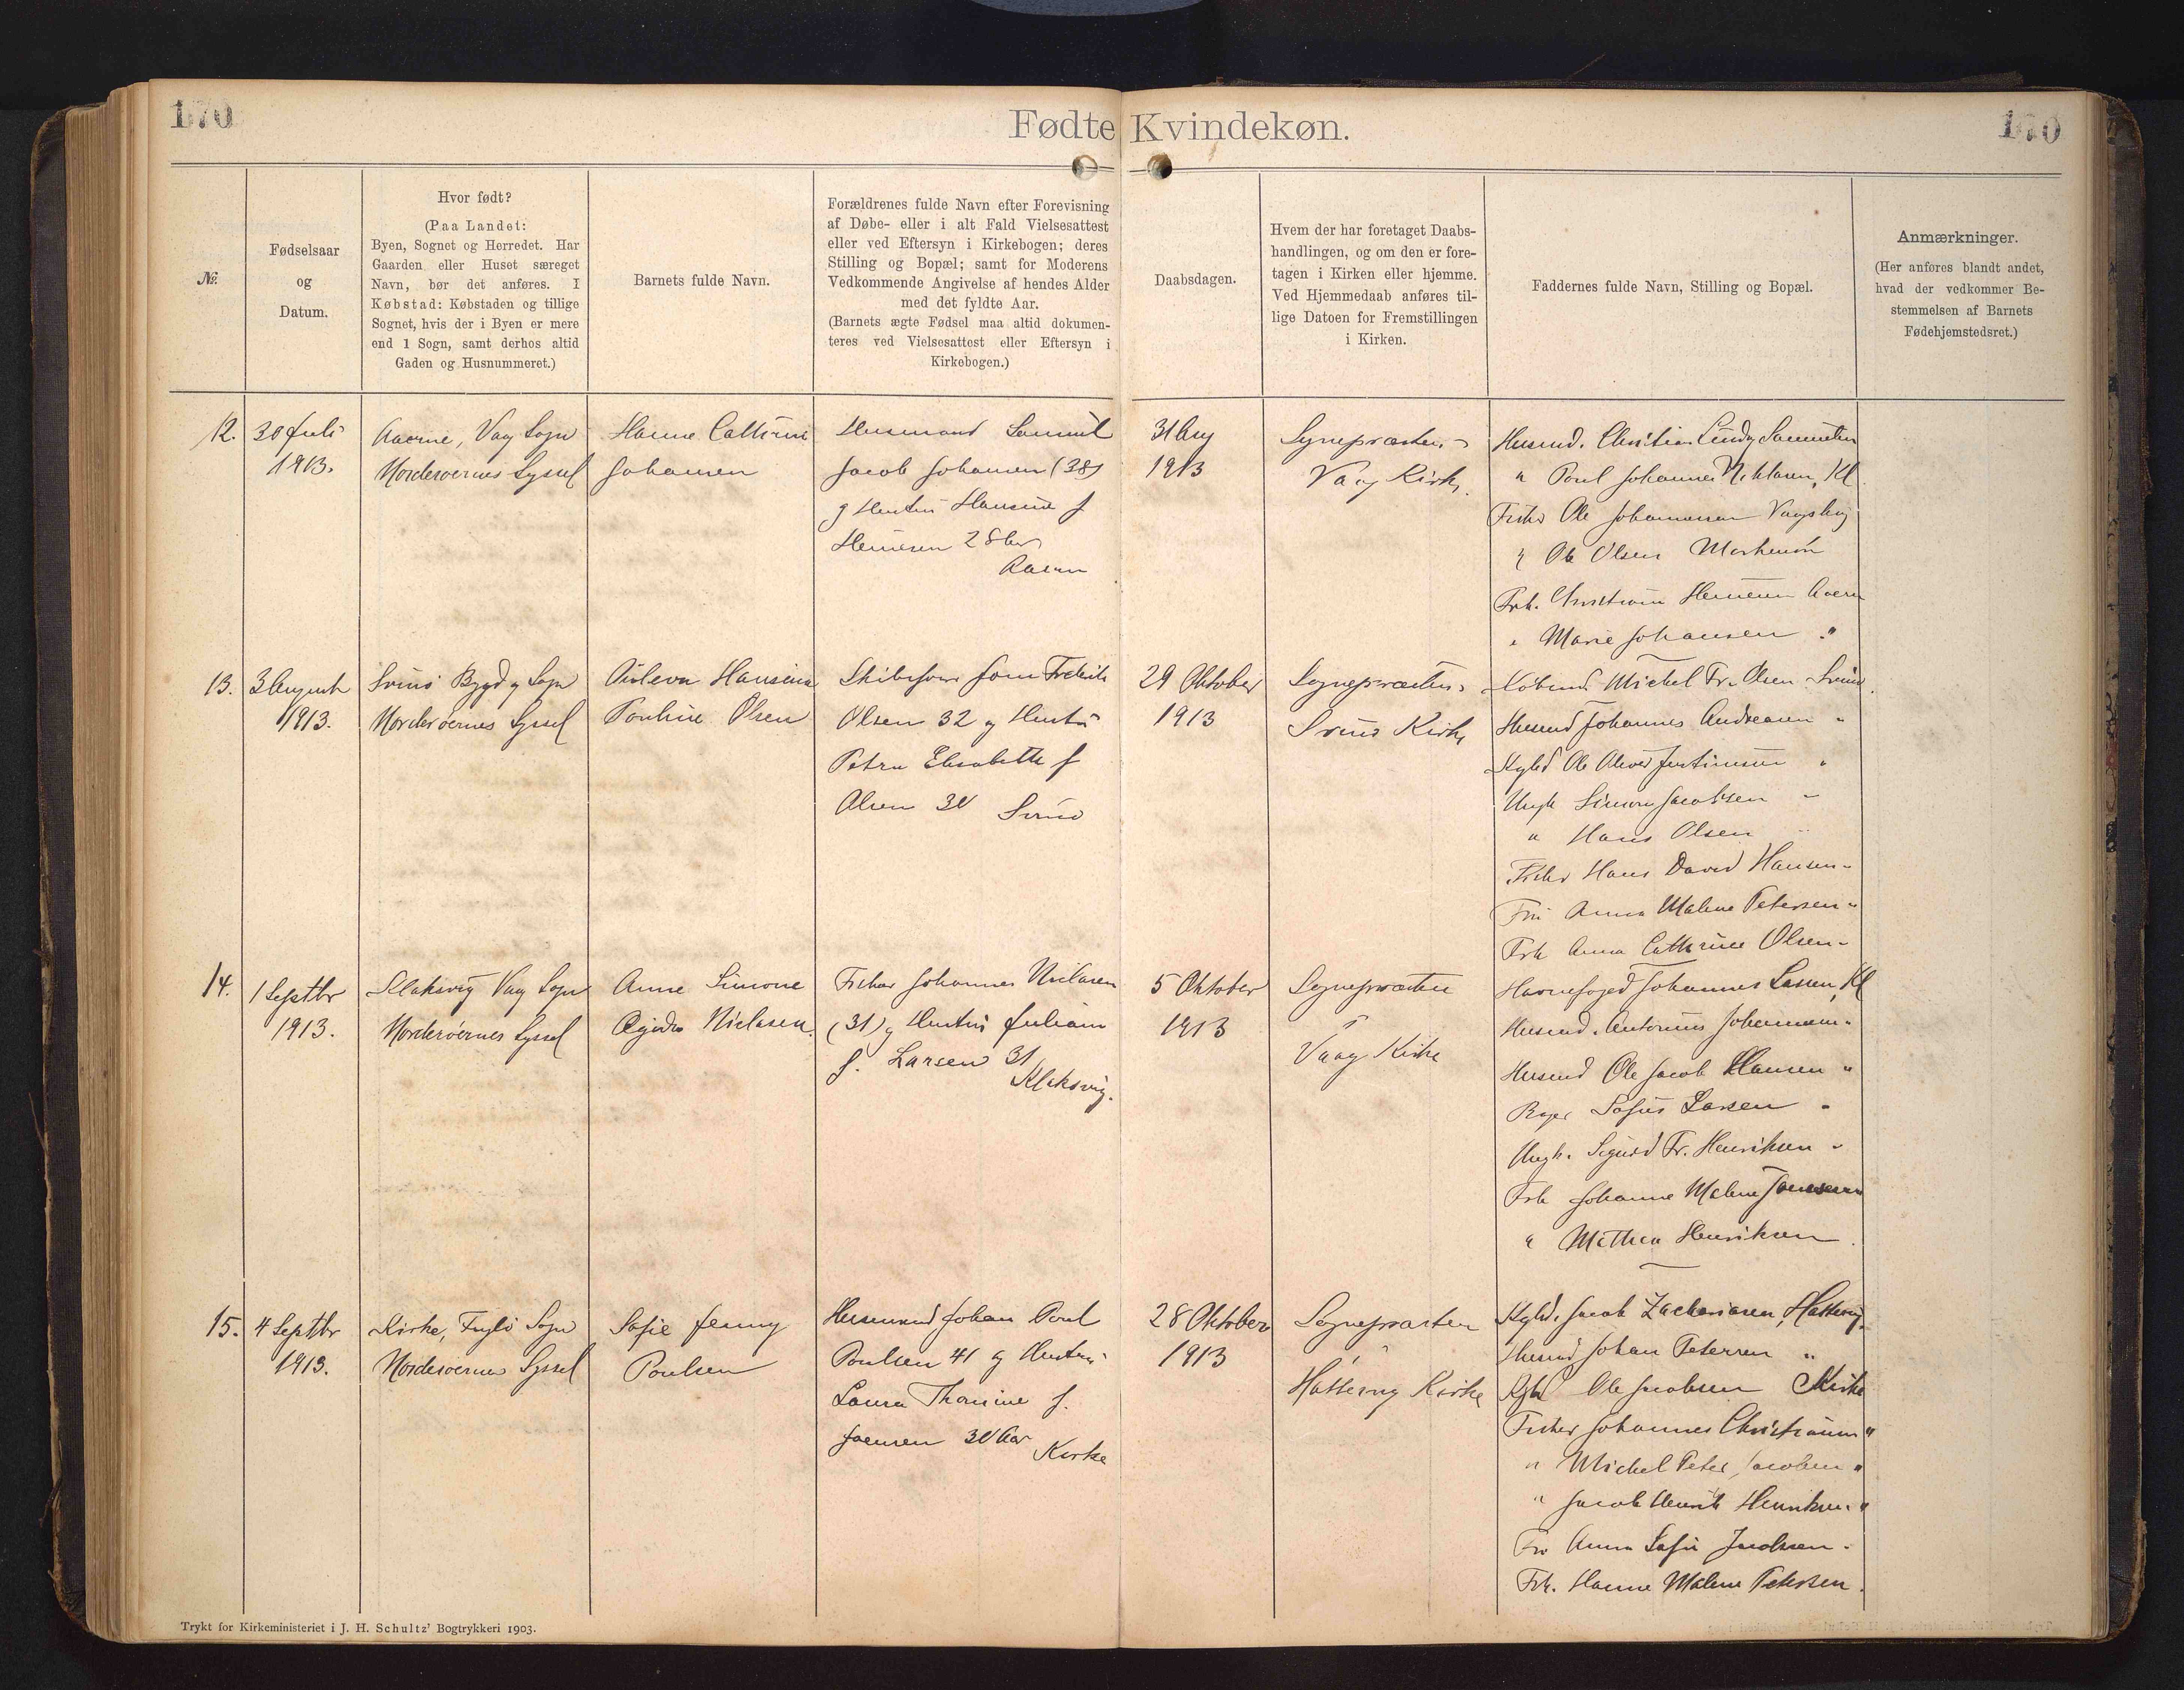 170
Fødte Kvindekøn.
170
№.
Fødselsaar
og
Datum.
Hvor født?
(Paa Landet:
Byen, Sognet og Herredet. Har
Gaarden eller Huset særeget
Navn, bør det anføres. I
Købstad: Købstaden og tillige
Sognet, hvis der i Byen er mere
end 1 Sogn, samt derhos altid
Gaden og Husnummeret.)
Barnets fulde Navn.
Forældrenes fulde Navn efter Forevisning
af Døbe- eller i alt Fald Vielsesattest
eller ved Eftersyn i Kirkebogen; deres
Stilling og Bopæl; samt for Moderens
Vedkommende Angivelse af hendes Alder
med det fyldte Aar.
(Barnets ægte Fødsel maa altid dokumen-
teres ved Vielsesattest eller Eftersyn i
Kirkebogen.)
Daabsdagen.
Hvem der har foretaget Daabs-
handlingen, og om den er fore-
tagen i Kirken eller hjemme.
Ved Hjemmedaab anføres til-
lige Datoen for Fremstillingen
i Kirken.
Faddernes fulde Navn, Stilling og Bopæl.
Anmærkninger.
(Her anføres blandt andet,
hvad der vedkommer Be-
stemmelsen af Barnets
Fødehjemstedsret.)
12.
30 Juli
1913.
Aaerne, Vaag Sogn
Norderøernes Syssel
Hanne Cathrine
Johansen
Husmand Samuel
Jacob Johansen (38)
og Hustru Hansine f
Hennesen 28 Aar
31 Aug
1913
Sognepræsten
Vaag Kirke.
Husmd. Christian Samuelsen
" Poul Johannes Niklasen, Kl
Fisker Ole Johannesen
" Ole Olsen
Frk. Aaerne
" Marie Johansen "
13.
3 August
1913.
Svinø Bygd og Sogn
Norderøernes Syssel
Hansine
Pauline Olsen
Frederik
Olsen 32 og Hustru
Petra Elisabeth f
Olsen 30 Svinø
29 Oktober
1913
Sognepræsten
Svinø Kirke
Købmd Michel Fr. Olsen Svinø
Husmd Johannes Andreasen "
Ole Justinussen "
Ungk Simon Jacobsen "
" Hans Olsen "
Fisker Hans David Hansen "
Fru Anna Malene Petersen "
Frk Anna Cathrine Olsen "
14.
1 Septbr
1913.
Klaksvig Vaag Sogn
Norderøernes Syssel
Anne Simone
Niclasen
Fisker Johannes Niclasen
(31) og Hustru Juliane
f. Larsen 31
Klaksvig.
5 Oktober
1913
Sognepræsten
Vaag Kirke
Havnefoged Johannes Lassen, Kl
Husmd. Antonius Johannesen "
Husmd Ole Jacob Hansen "
Sofus Larsen "
Ungk. Sigurd Fr. Henriksen "
Frk Johanne Malene
" Mathea Henriksen
15.
4 Septbr
1913.
Kirke, Fuglø Sogn
Norderøernes Syssel
Sofie Jenny
Poulsen
Husmand Johan Poul
Poulsen 41 og Hustru
Laura Thomine f.
Joensen 30 Aar
Kirke
28 Oktober
1913
Sognepræsten
Hattervig Kirke
Jacob Zachariasen, Hattervig
Husmd Johan Petersen "
Ole Jacobsen Kirke
Fisker Johannes Christiansen "
" Michel Peter Jacobsen "
" Jacob Henrik Henriksen "
Fru Anna Sofie Jacobsen "
Frk. Hanne Malene Petersen
Trykt for Kirkeministeriet i J. H. Schultz' Bogtrykkeri 1903.